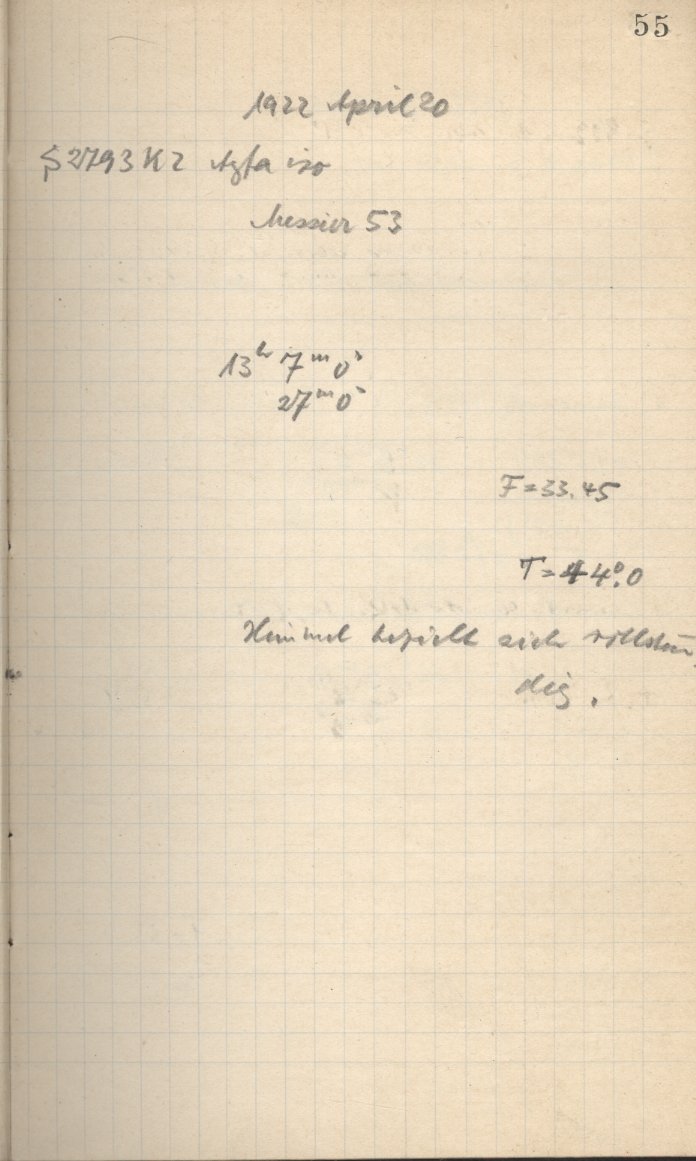 55
1922 April 20
S 2793 K2 Agfa iso
Messier 53
13h 7m 0s
27m 0s
F = 33.45
T = +4°.0
Himmel bezieht sich vollstän
dig.